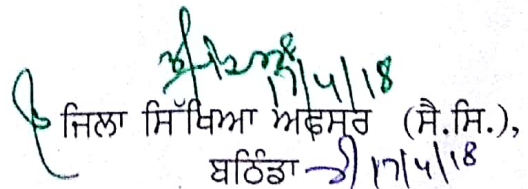 17/4/18
ਜਿਲਾ ਸਿੱਖਿਆ ਅਫਸਰ (ਸੈ.ਸਿ.),
ਬਠਿੰਡਾ 17/4/18